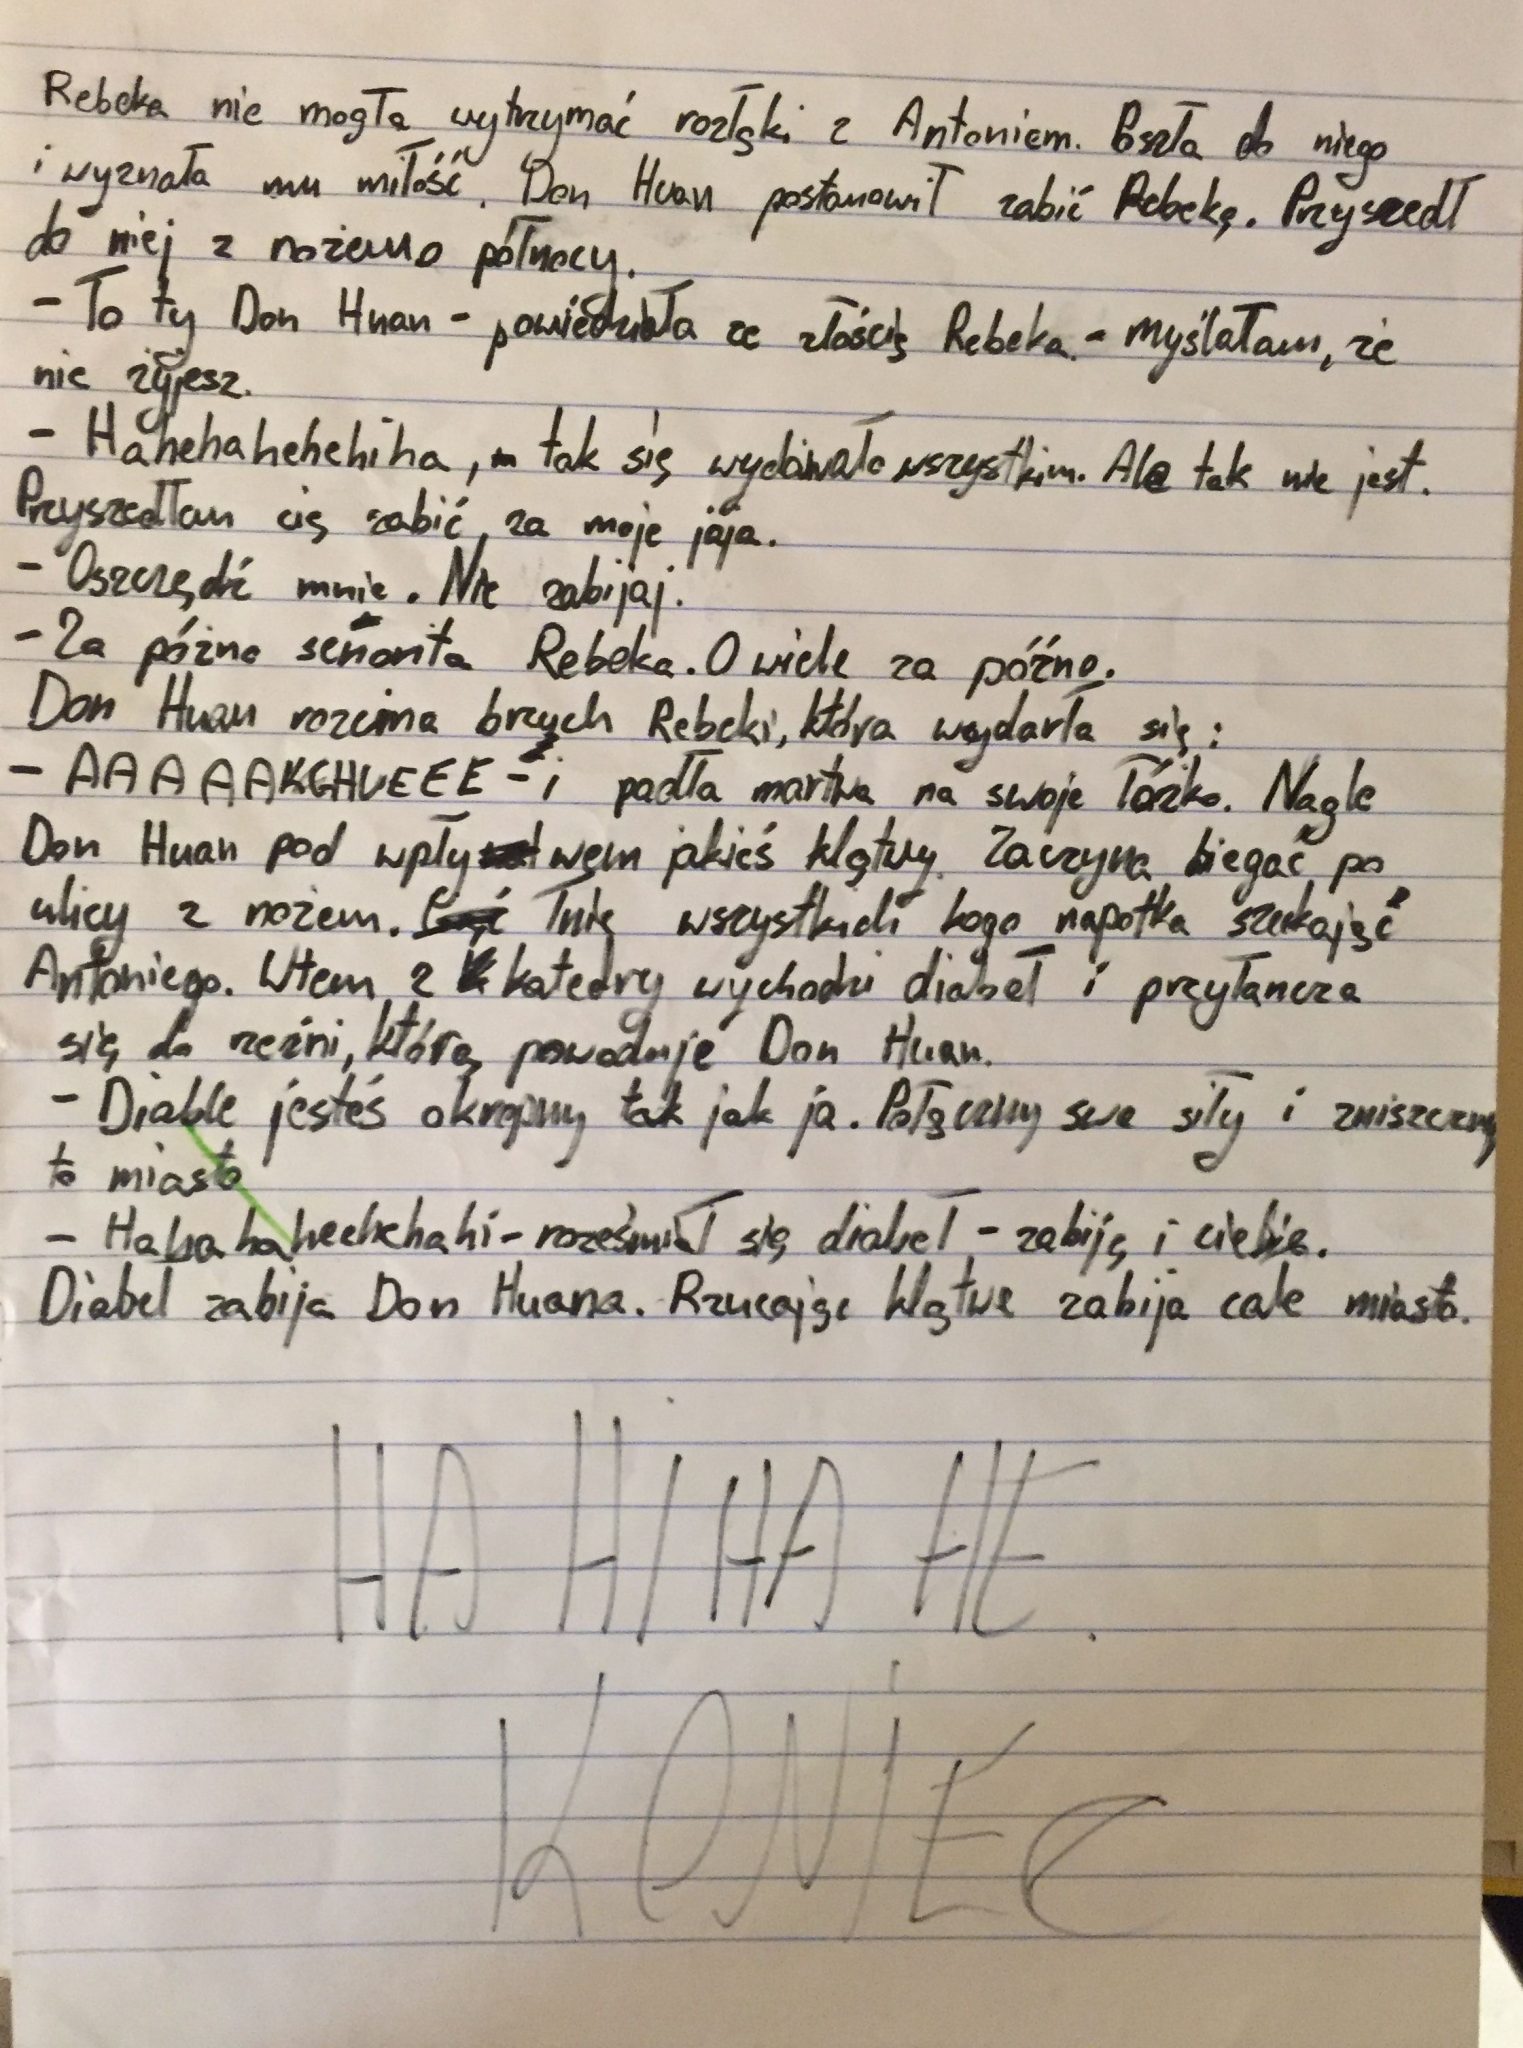 Rebeka nie mogła wytrzymać rozłąki z Antoniem. Poszła do niego
i wyznała mu miłość. Don Huan postanowił zabić Rebekę. Przyszedł
do niej z nożem o północy.
- To ty Don Huan - powiedziała ze złością Rebeka. - Myślałam, że
nie żyjesz.
- Hahehahehehiha, tak się wydawało wszystkim. Ale tak nie jest.
Przyszedłem cię zabić, za moje jaja.
- Oszczędź mnie. Nie zabijaj.
- Za późno señorita Rebeka. O wiele za późno.
Don Huan rozcina brzuch Rebeki, która wydarła się:
- AAAAAKGHUEEE - i padła martwa na swoje łóżko. Nagle
Don Huan pod wpływem jakieś klątwy. Zaczyna biegać po
ulicy z nożem. Tnię wszystkich kogo napotka szukająć
Antoniego. Wtem z katedry wychodzi diabeł i przyłancza
się do rzeźni, którą powoduje Don Huan.
- Diable jesteś okropny tak jak ja. Połączmy swe siły i zniszczmy
to miasto
- Hahahaheehehahi - roześmiał się diabeł - zabiję i ciebie.
Diabeł zabija Don Huana. Rzucając klątwe zabija całe miasto.
HA HI HA HE.
KONIEC